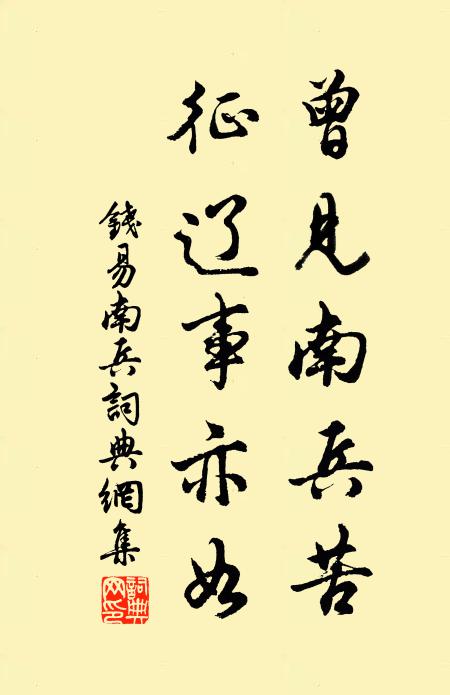 曾见南兵苦
征辽事亦如
錢易南兵詞典網集
詞典
网印